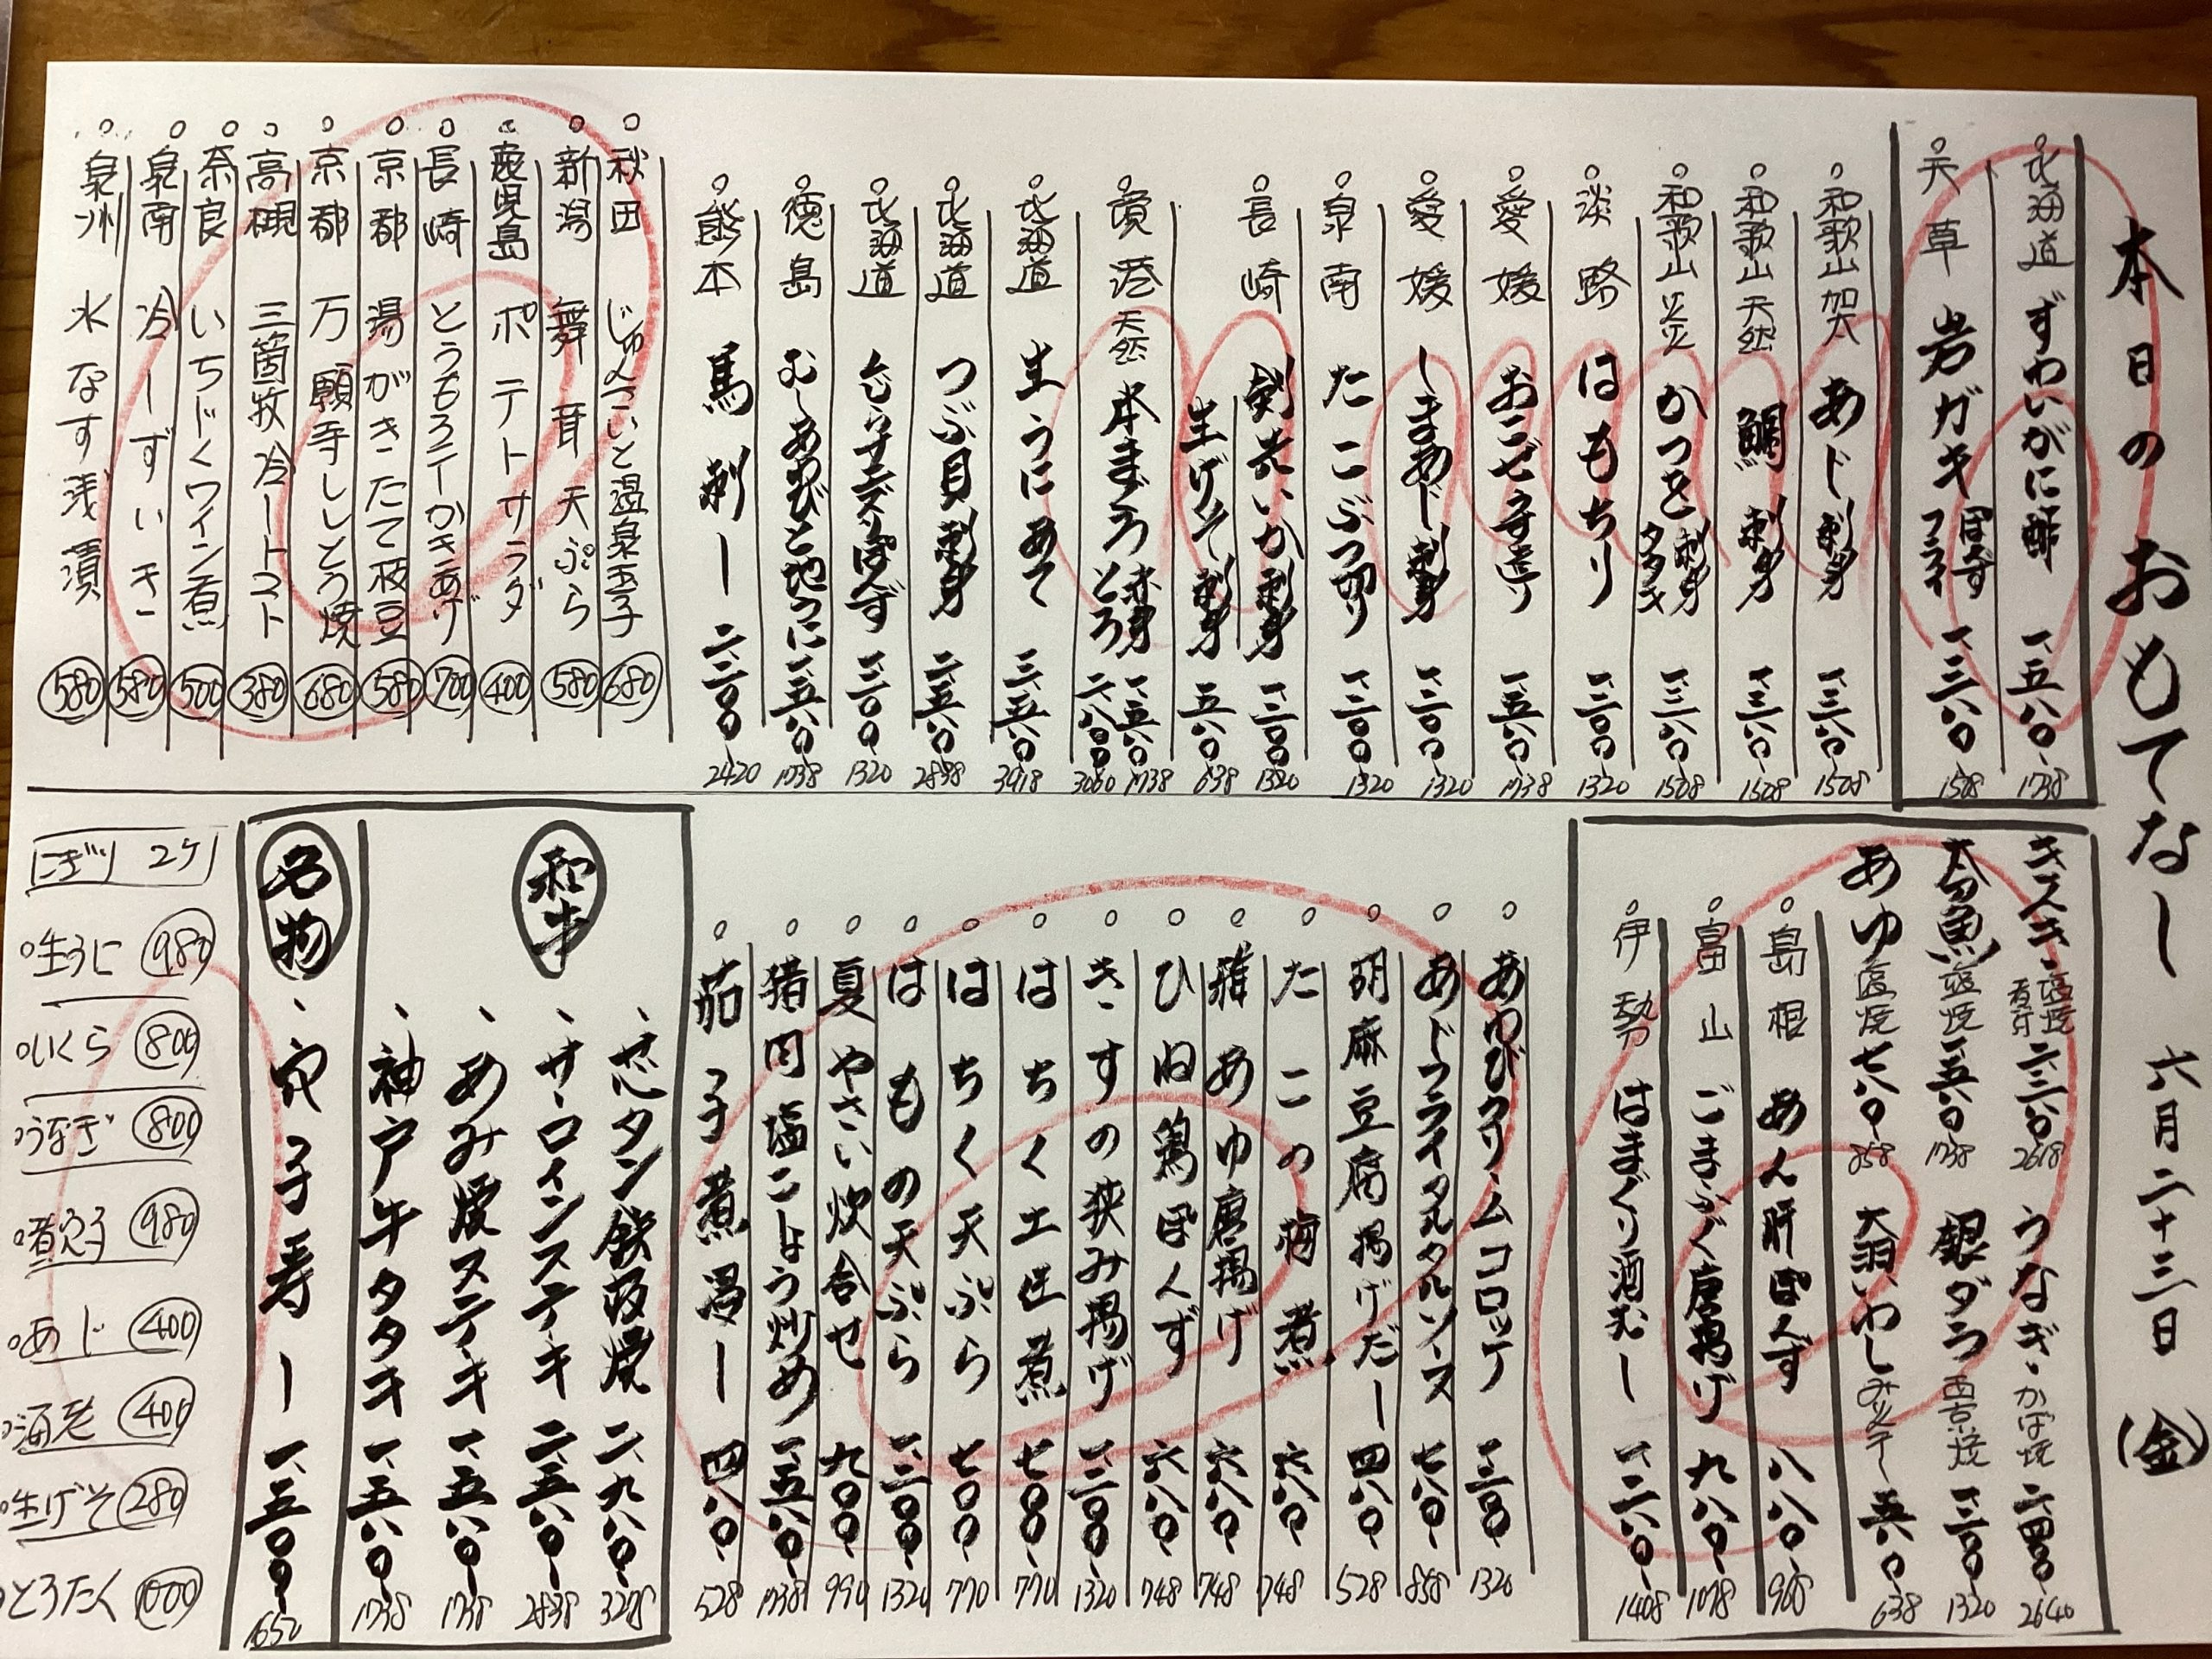 本日のおもてなし 六月二十三日(金)
北海道 ずわいがに酢 一、五八〇 1738
天草 岩ガキ ぽん酢 フライ 一、三八〇 1508
和歌山 加太 あじ刺身 一、三八〇 1508
和歌山 天然 鯛刺身 一、三八〇 1508
和歌山 かつを 刺身 タタキ 一、三八〇 1508
淡路 はもちり 一、二〇〇 1320
愛媛 おこぜ 一、五八〇 1738
愛媛 しまあじ刺身 一、二〇〇 1320
泉南 たこぶつ切り 一、二〇〇 1320
長崎 剣先いか刺身 一、二〇〇 1320
生げそ刺身 五八〇 638
境港 天然 本まぐろ 赤身 一、五八〇 1738
とろ 二、八〇〇 3080
北海道 生うにあて 三、五八〇 3918
北海道 つぶ貝刺身 二、五八〇 2838
北海道 一、二〇〇 1320
徳島 むしあわびと地うに 一、五八〇 1738
熊本 馬刺し 二、二〇〇 2420
秋田 じゅんさいと温泉玉子 680
新潟 舞茸天ぷら 580
鹿児島 ポテトサラダ 400
長崎 とうもろこしかきあげ 700
京都 湯がきたて枝豆 580
京都 万願寺ししとう焼 680
高槻 三箇牧冷しトマト 380
奈良 いちじくワイン煮 500
泉南 冷しずいき 580
泉州 水なす浅漬 580
キスキ 塩焼 二、三八〇 2618
うなぎ かば焼 二、四〇〇 2640
太刀魚 塩焼 一、五八〇 1738
銀ダラ 西京焼 一、二〇〇 1320
あゆ 塩焼 七八〇 858
大羽いわし 五八〇 638
島根 あん肝ぽんず 八八〇 968
富山 ごまふぐ唐揚げ 九八〇 1078
伊勢 はまぐり酒むし 一、二八〇 1408
あわびクリームコロッケ 一、二〇〇 1320
あじフライタルタルソース 七八〇 858
胡麻豆腐揚げだし 四八〇 528
たこの柔煮 六八〇 748
稚あゆ唐揚げ 六八〇 748
ひね鶏ぽんず 六八〇 748
きすの挟み揚げ 一、二〇〇 1320
はちく土佐煮 七〇〇 770
はちく天ぷら 七〇〇 770
はもの天ぷら 一、二〇〇 1320
夏やさい炊合せ 九〇〇 990
猪肉塩こしょう炒め 一、五八〇 1738
茄子煮浸し 四八〇 528
和牛
芯タン鉄板焼 二、九八〇 3278
サーロインステーキ 二、五八〇 2838
あみ焼ステーキ 一、五八〇 1738
神戸牛タタキ 一、五八〇 1738
名物
穴子寿し 一、五〇〇 1650
にぎり 2ケ
生うに 980
いくら 800
うなぎ 800
煮穴子 980
あじ 400
海老 400
生げそ 280
とろたく 1000